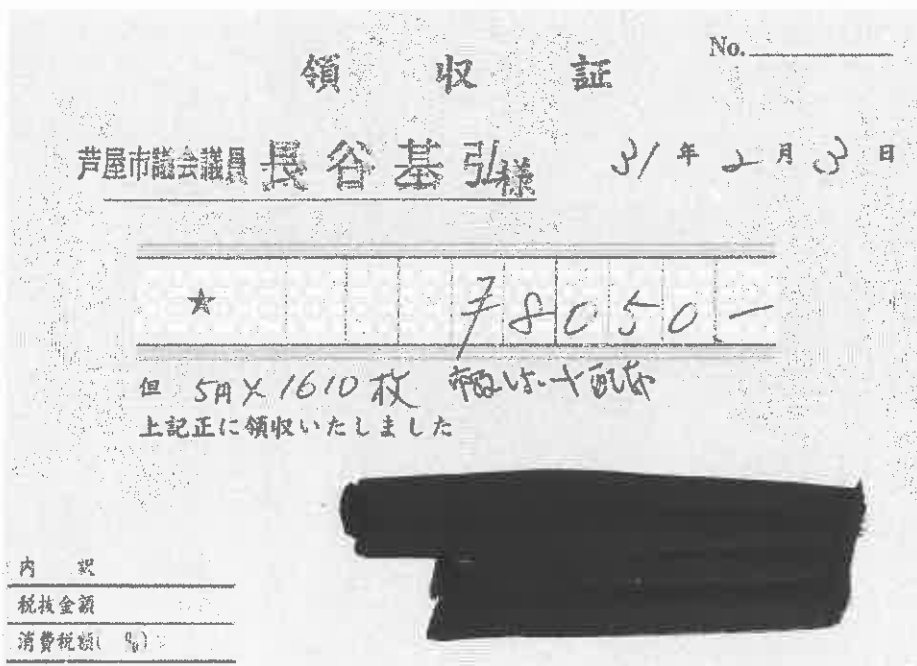 No.
領収証
芦屋市議会議員 長谷基弘様 31年2月3日
★ ¥8050-
但 5円×1610枚 市政レポート配布
上記正に領収いたしました
内 訳
税抜金額
消費税額( %)